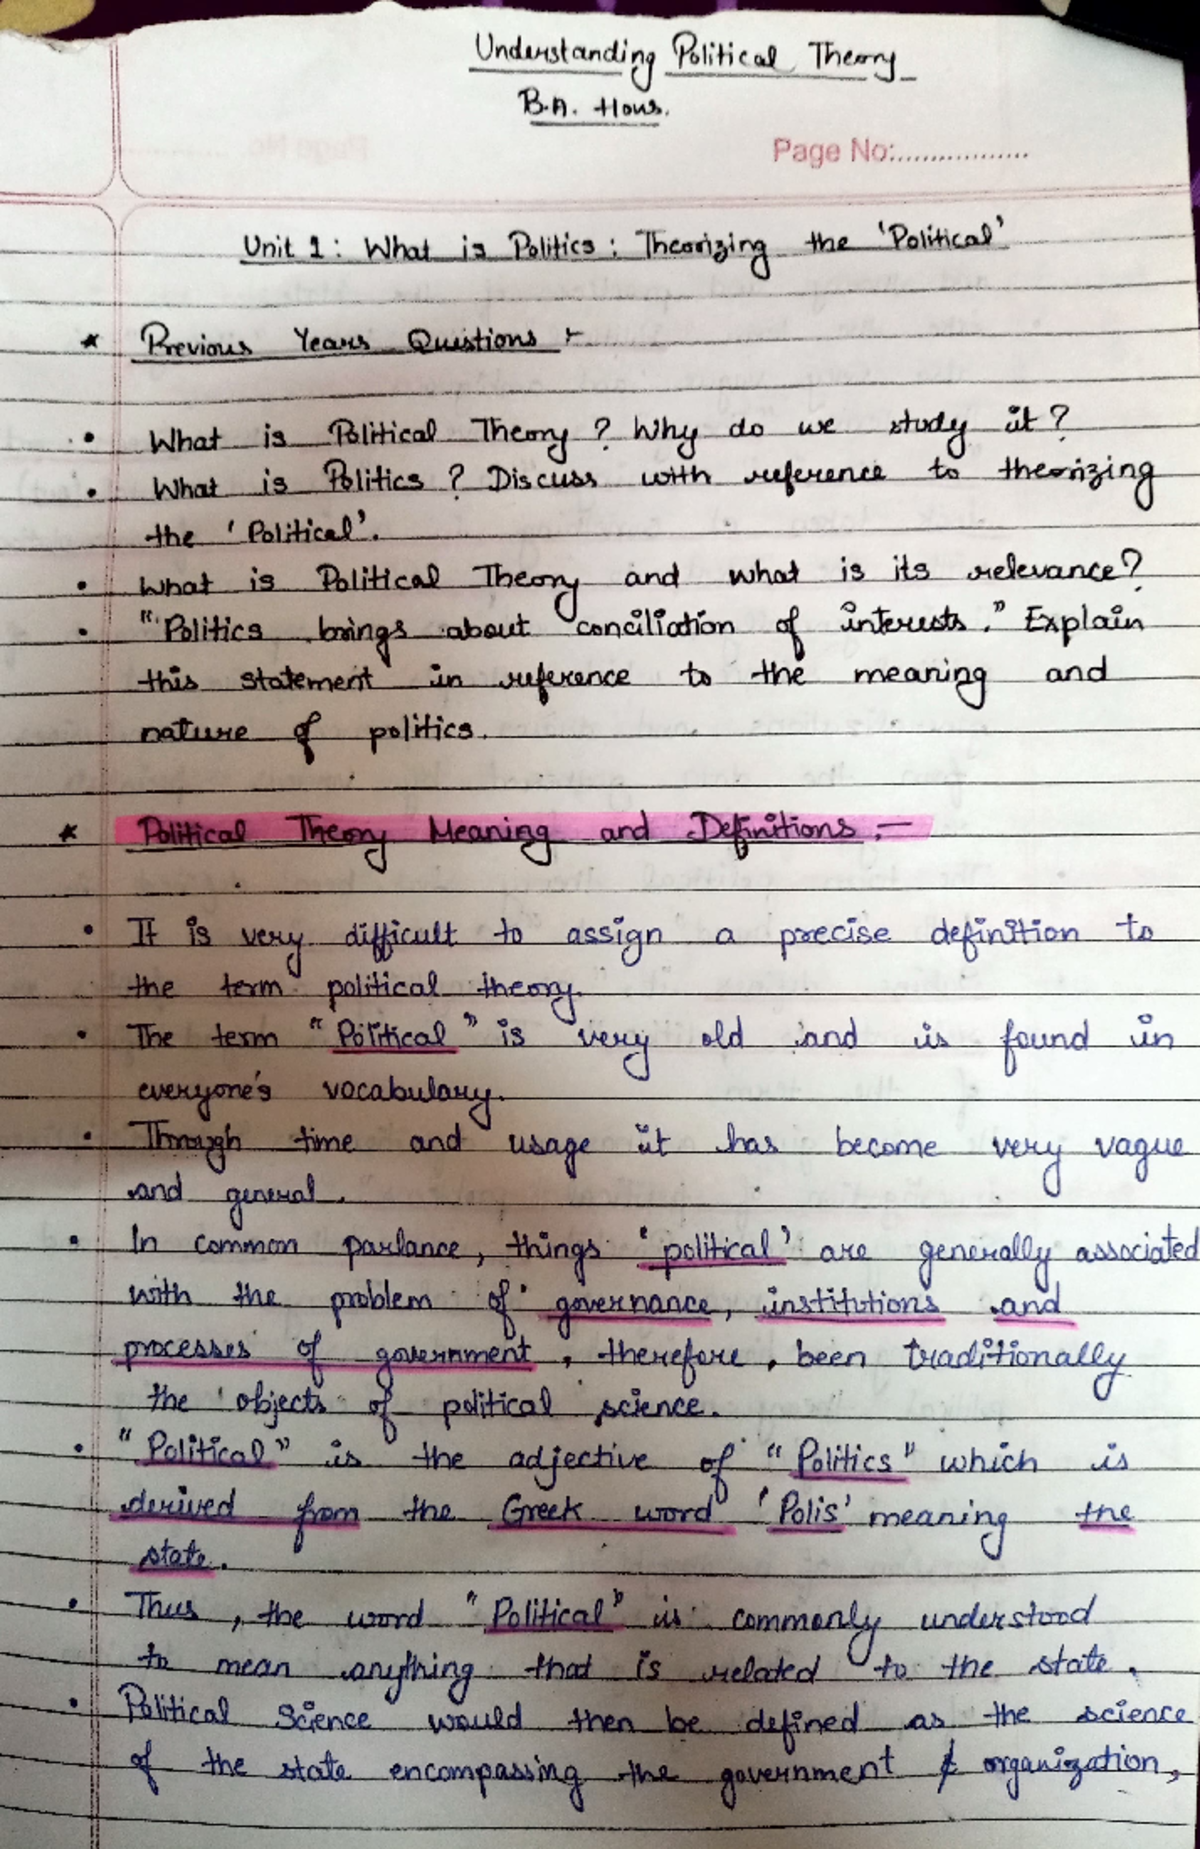 Understanding Political Theory
B.A. Hons.
Page No:..................
Unit 1: What is Politics: Theorizing the 'Political'
* Previous Years Questions :-
• What is Political Theory? Why do we study it?
• What is Politics? Discuss with reference to theorizing
the 'Political'.
• What is Political Theory and what is its relevance?
• "Politics brings about conciliation of interests." Explain
this statement in reference to the meaning and
nature of politics.
* Political Theory Meaning and Definitions :-
• It is very difficult to assign a precise definition to
the term political theory.
• The term "Political" is very old and is found in
everyone's vocabulary.
• Through time and usage it has become very vague
and general.
• In common parlance, things 'political' are generally associated
with the problem of governance, institutions and
processes of government, therefore, been traditionally
the objects of political science.
• "Political" is the adjective of "Politics" which is
derived from the Greek word 'Polis' meaning the
state.
• Thus, the word "Political" is commonly understood
to mean anything that is related to the state.
• Political Science would then be defined as the science
of the state encompassing the government & organization,